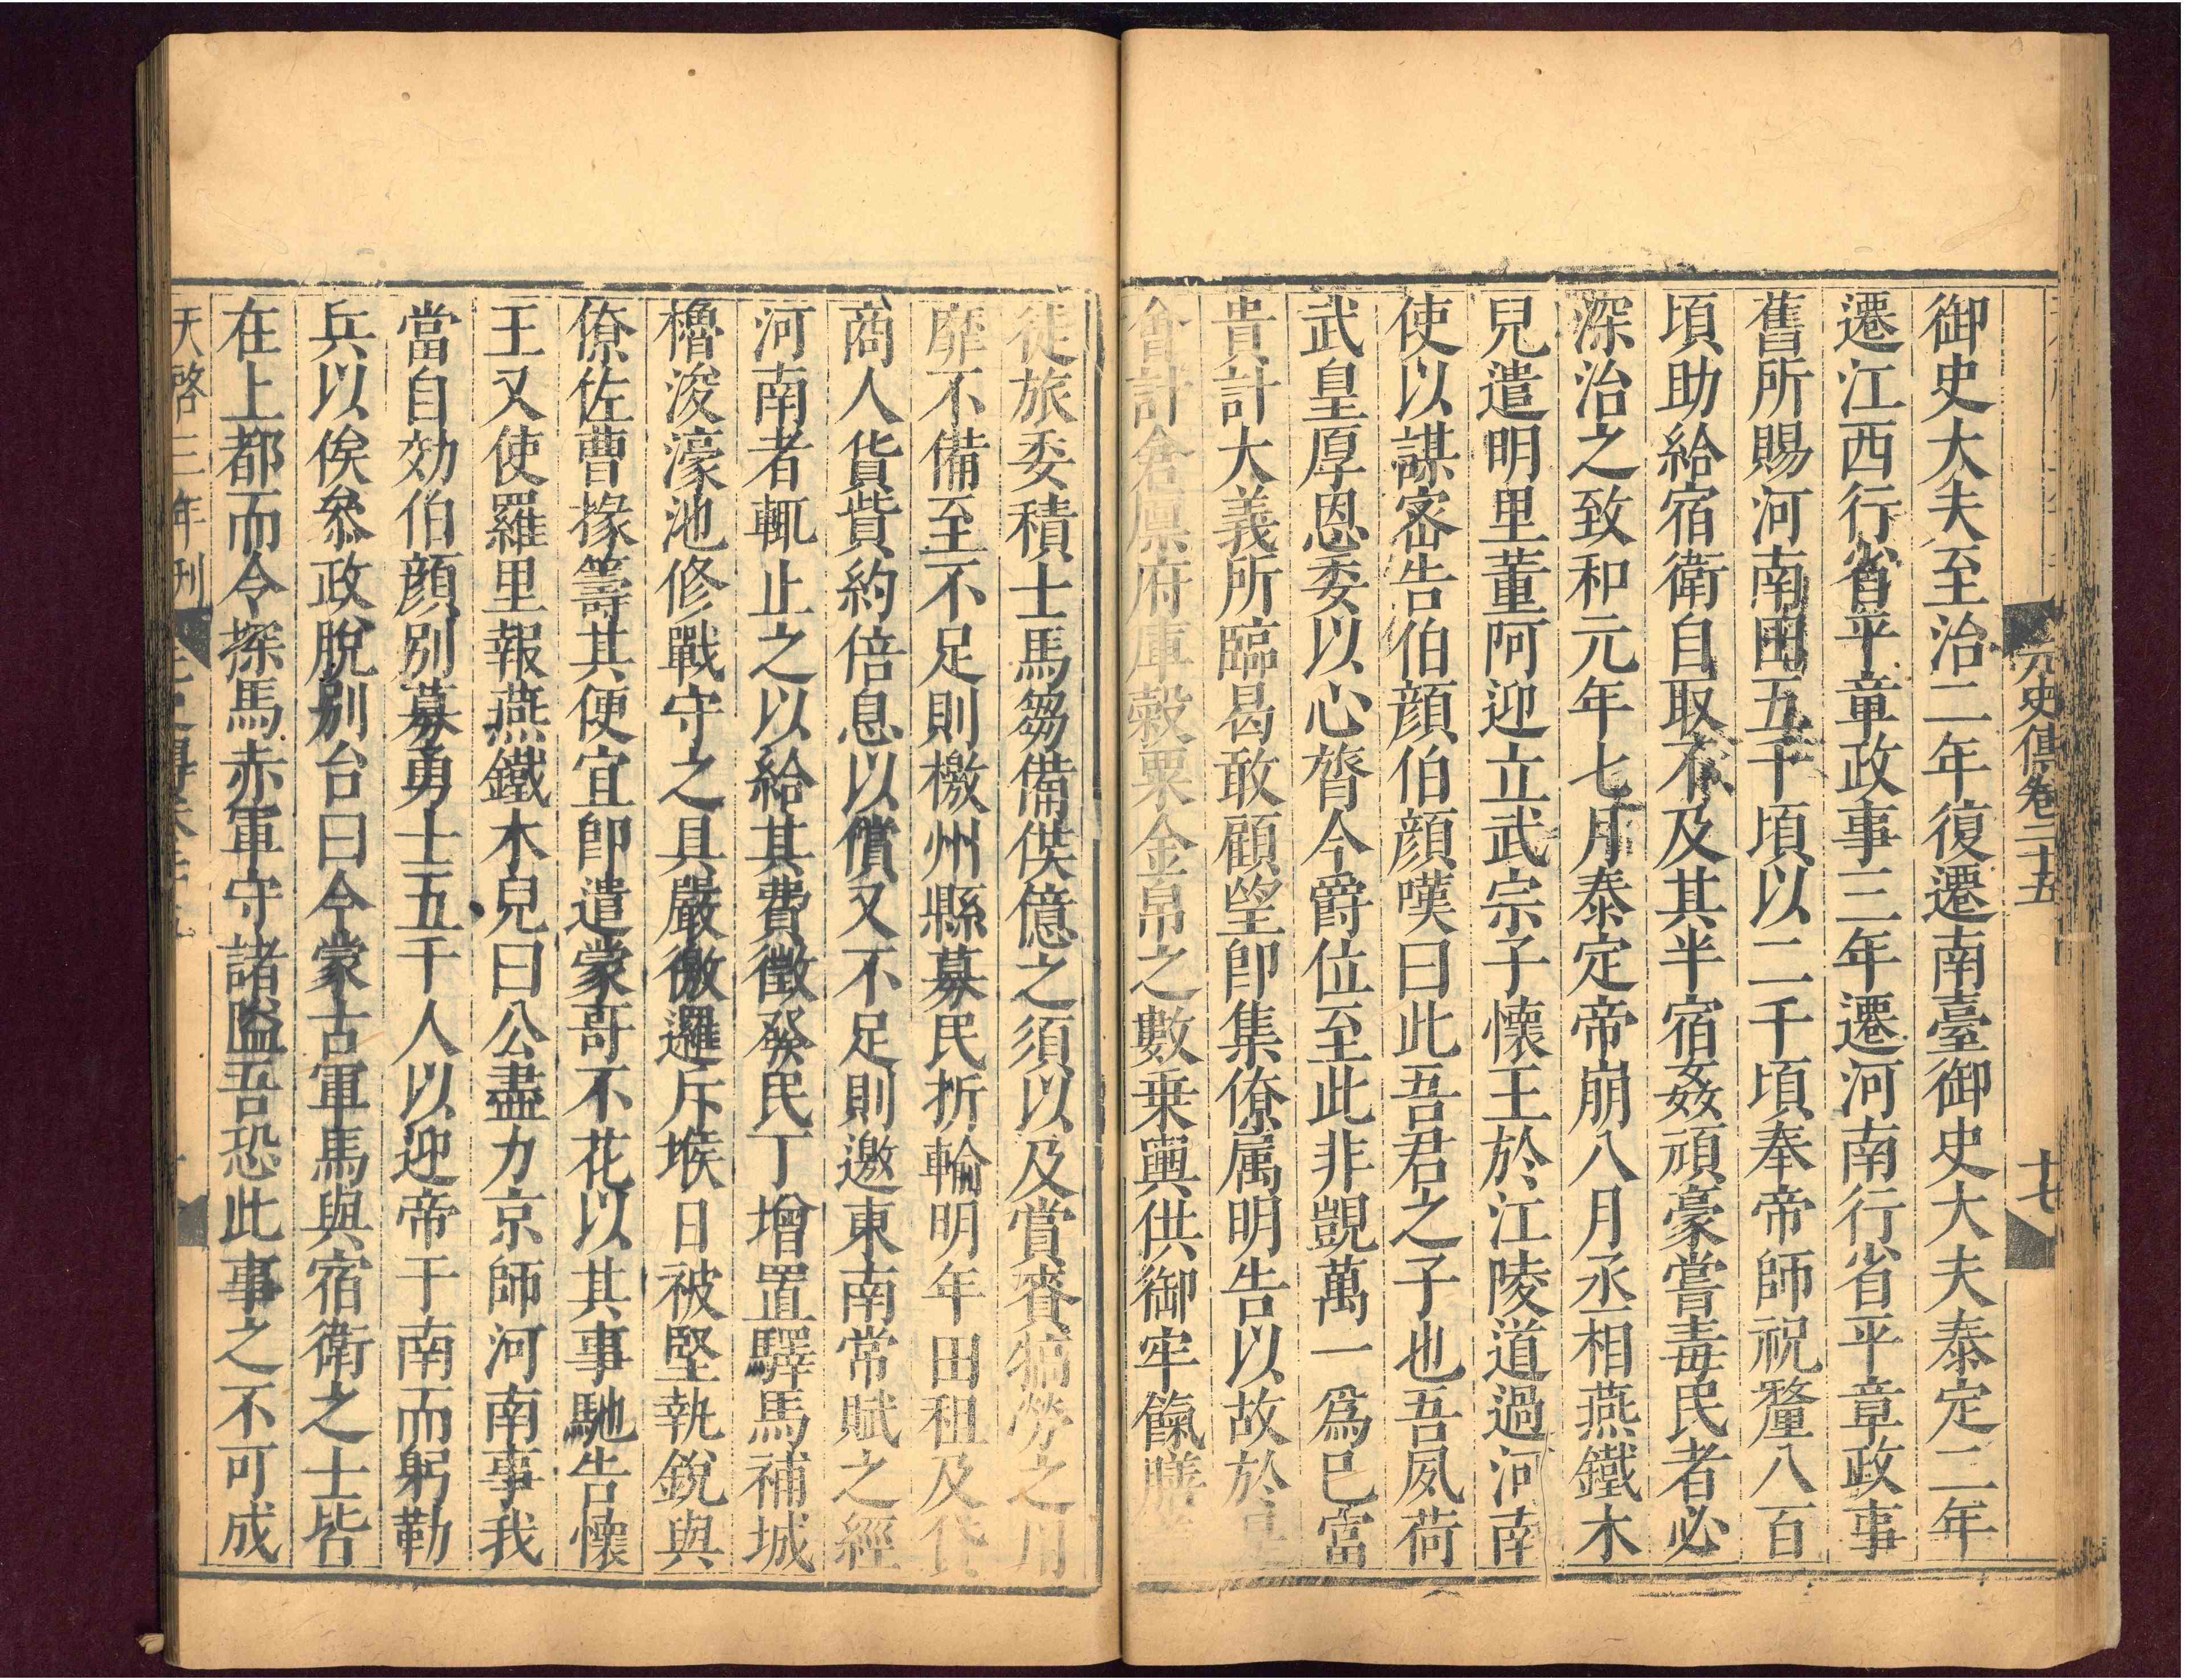 元史傳卷二十五
十七
御史大夫至治二年復遷南臺御史大夫泰定二年
遷江西行省平章政事三年遷河南行省平章政事
舊所賜河南田五千頃以二千頃奉帝師祝釐八百
頃助給宿衛自取不及其半宿姦頑豪嘗毒民者必
深治之致和元年七月泰定帝崩八月丞相燕鐵木
兒遣明里董阿迎立武宗子懷王於江陵道過河南
使以謀密告伯顔伯顔嘆曰此吾君之子也吾夙荷
武皇厚恩委以心膂今爵位至此非覬萬一爲已富
貴計大義所臨曷敢顧望即集僚属明告以故於是
會計倉廪府庫穀粟金帛之數乗輿供御牢餼膳
徒旅委積士馬芻備供億之須以及賞賚犒勞之用
靡不備至不足則檄州縣募民折輸明年田租及貸
商人貨貲約倍息以償又不足則邀東南常賦之經
河南者輒止之以給其費徵發民丁增置驛馬補城
櫓浚濠池修戰守之具嚴徼邏斥堠日被堅執銳與
僚佐曹掾籌其便宜即遣蒙哥不花以其事馳告懷
王又使羅里報燕鐵木兒曰公盡力京師河南事我
當自効伯顔别募勇士五千人以迎帝于南而躬勒
兵以俟叅政脫别台曰今蒙古軍馬與宿衛之士皆
在上都而令探馬赤軍守諸隘吾恐此事之不可成
天啓三年刊